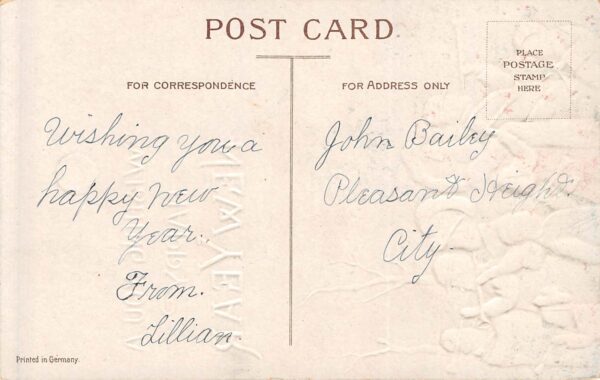 POST CARD
FOR CORRESPONDENCE
FOR ADDRESS ONLY
PLACE
POSTAGE
STAMP
HERE
Wishing you a
happy New
Year.
From.
Lillian.
John Bailey
Pleasant Height.
City.
NEW YEAR
Printed in Germany.